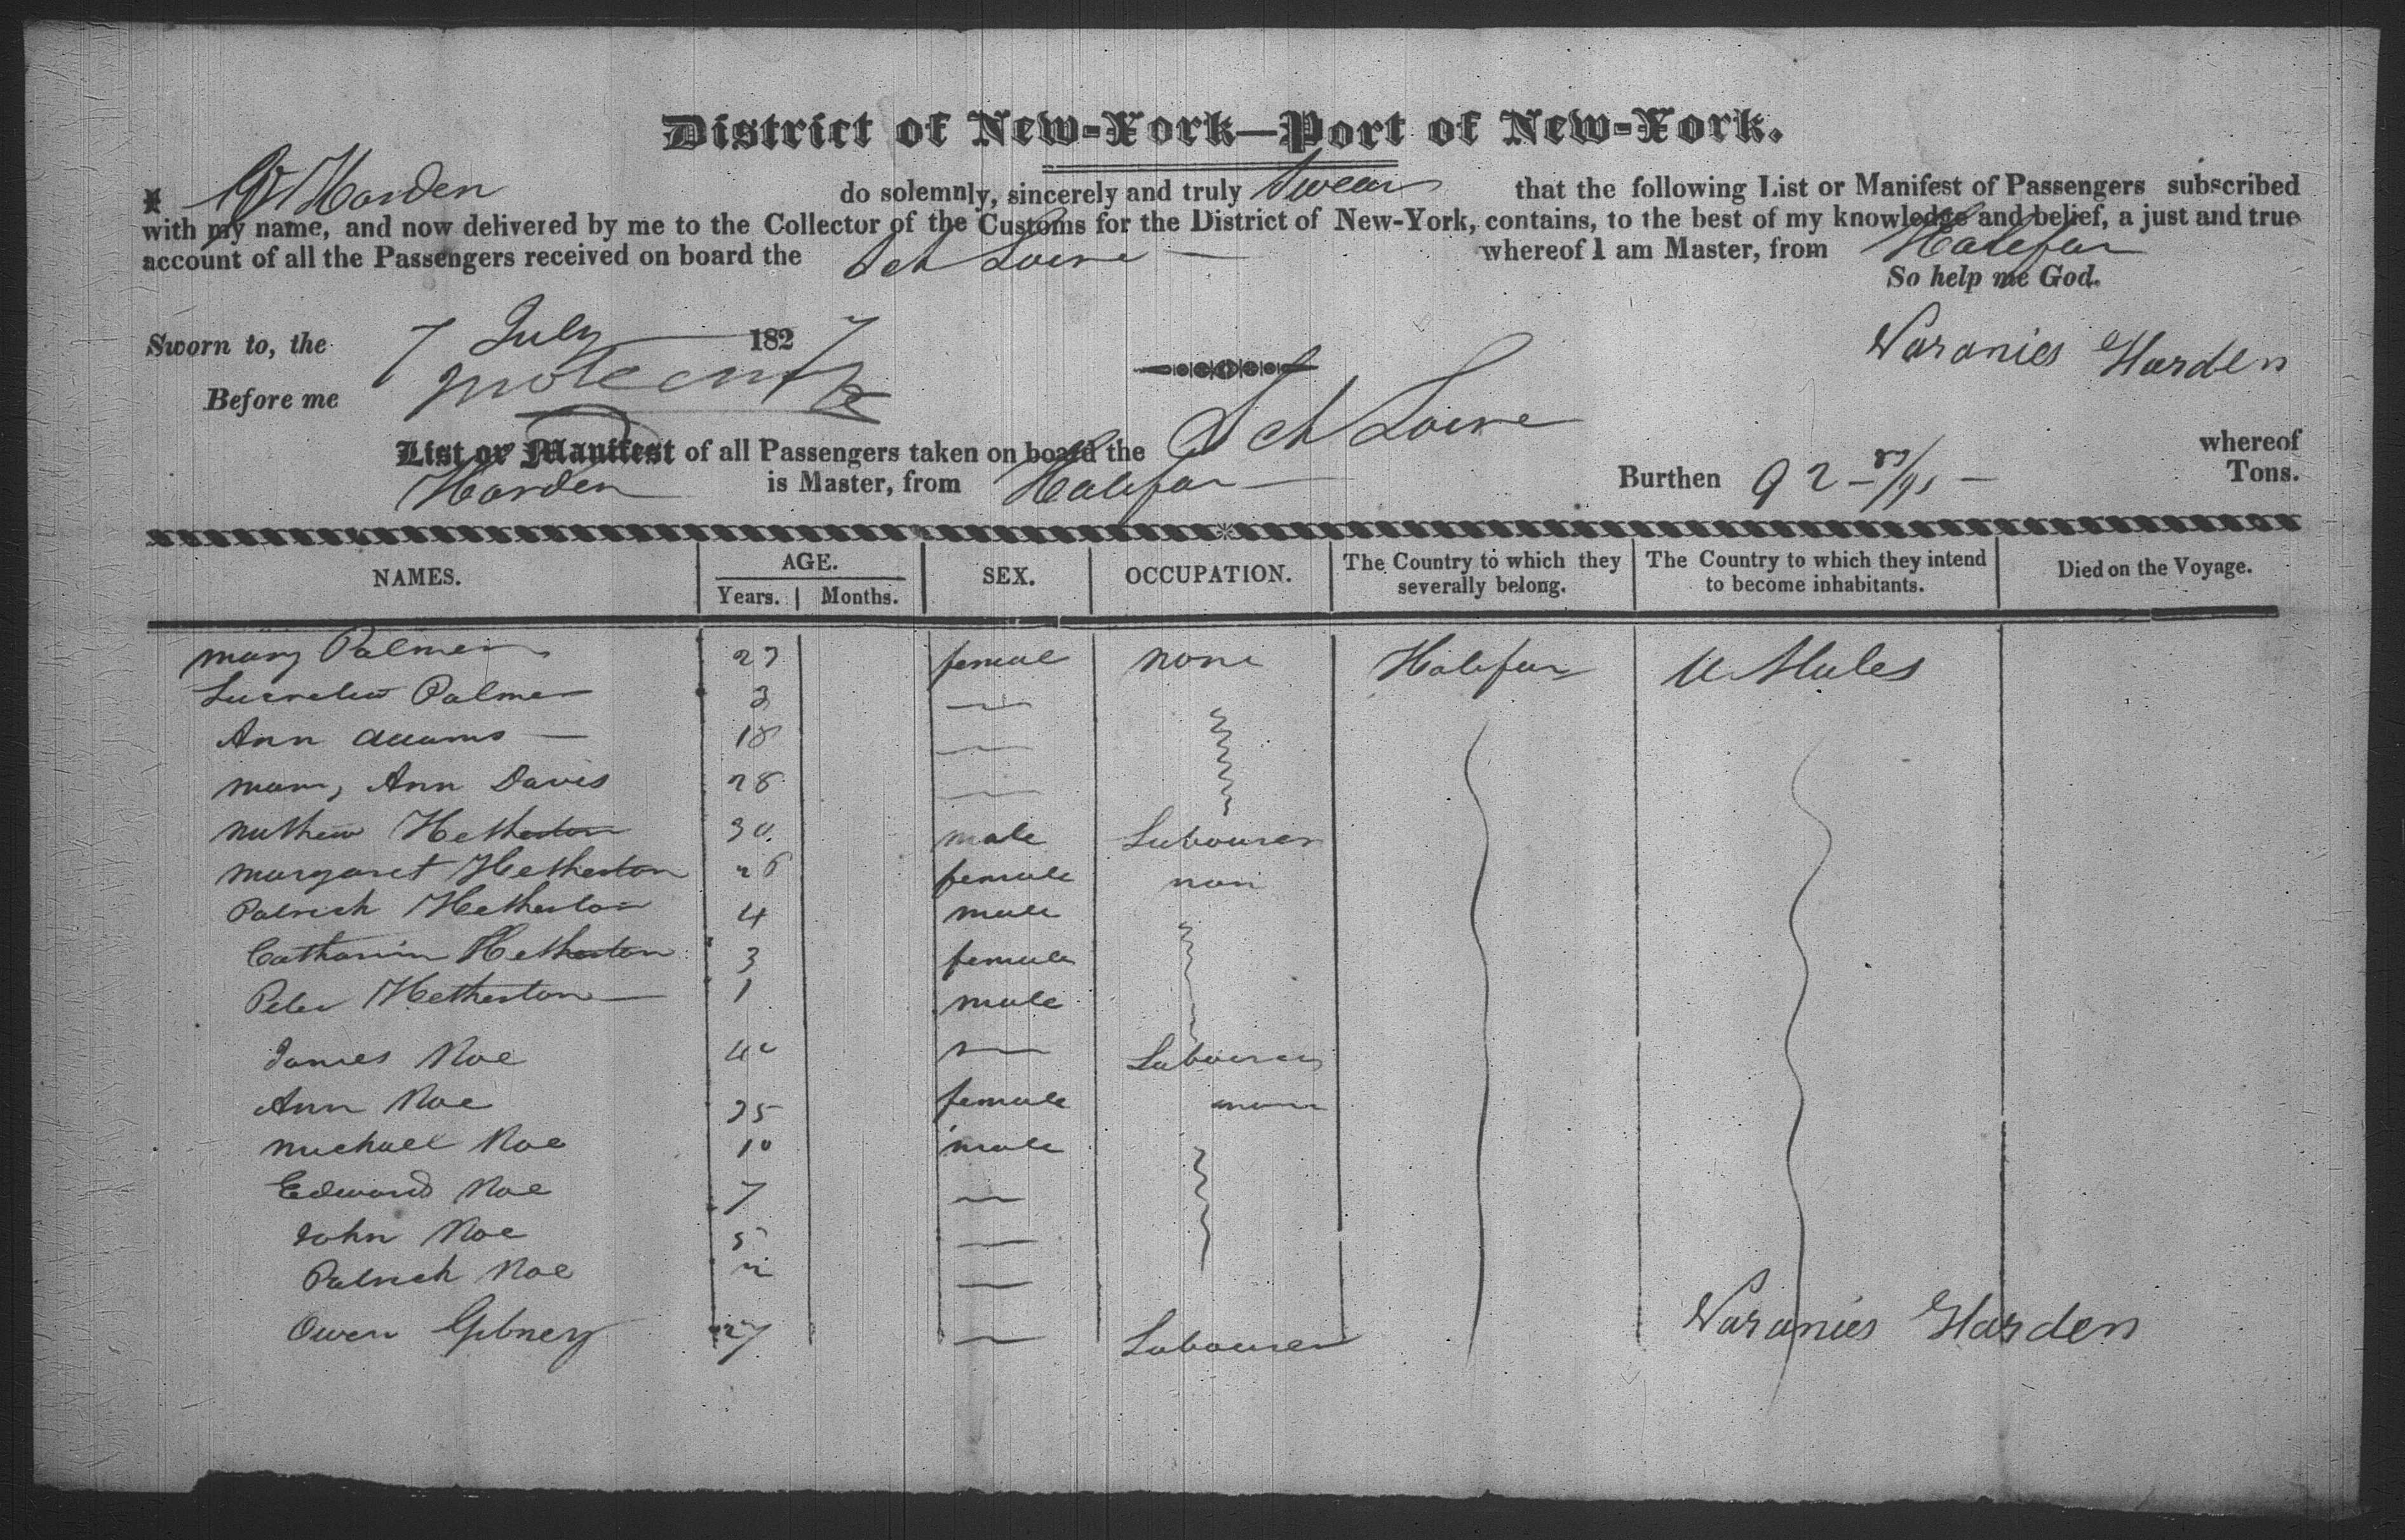 District of New-York—Port of New-York.
I W Harden do solemnly, sincerely and truly Swear that the following List or Manifest of Passengers subscribed
with my name, and now delivered by me to the Collector of the Customs for the District of New-York, contains, to the best of my knowledge and belief, a just and true
account of all the Passengers received on board the Sch whereof I am Master, from Halifax
So help me God.
Sworn to, the 7 July 1827
Harden
Before me
List or Manifest of all Passengers taken on board the Sch whereof
Harden is Master, from Halifax Burthen 92 Tons.
NAMES. AGE. SEX. OCCUPATION. The Country to which they severally belong. The Country to which they intend to become inhabitants. Died on the Voyage.
Years. Months.
Mary Palmer 27 female none Halifax U States
Palmer 3
Ann Adams 18
Mary Ann Davis 28
Mathew Hetherton 30 male Labourer
Margaret Hetherton 26 female non
Patrick Hetherton 4 male
Catharin Hetherton 3 female
Peter Hetherton 1 male
James Roe 40 Labourer
Ann Roe 35 female none
Michael Roe 10 male
Edward Roe 7
John Roe 5
Patrick Roe 2
Owen Gibney 27 Labourer
Harden